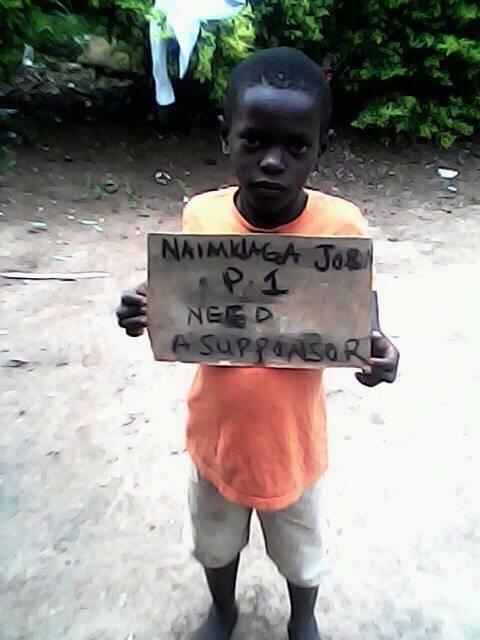 NAIMWAGA JOB
P.1
NEED
A SUPPONSOR